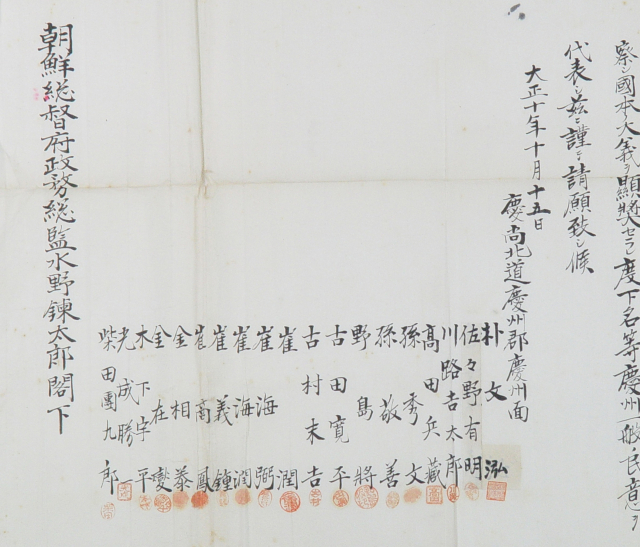 察シ國本ノ大義ヲ顯奬セラレ度下名等慶州一般民意ヲ
代表シ玆ニ謹テ請願致シ候
大正十年十月十五日
慶尚北道慶州郡慶州面
朴文泓
佐々野有明
川路吉太郎
高田兵藏
孫秀文
孫敬善
野島將
古田寬平
古村末吉
崔潤
崔海弼
崔海潤
崔義鍾
崔商鳳
金相泰
金在夑
木下宇平
光成勝一
柴田團九郎
朝鮮総督府政務総監水野錬太郎閣下